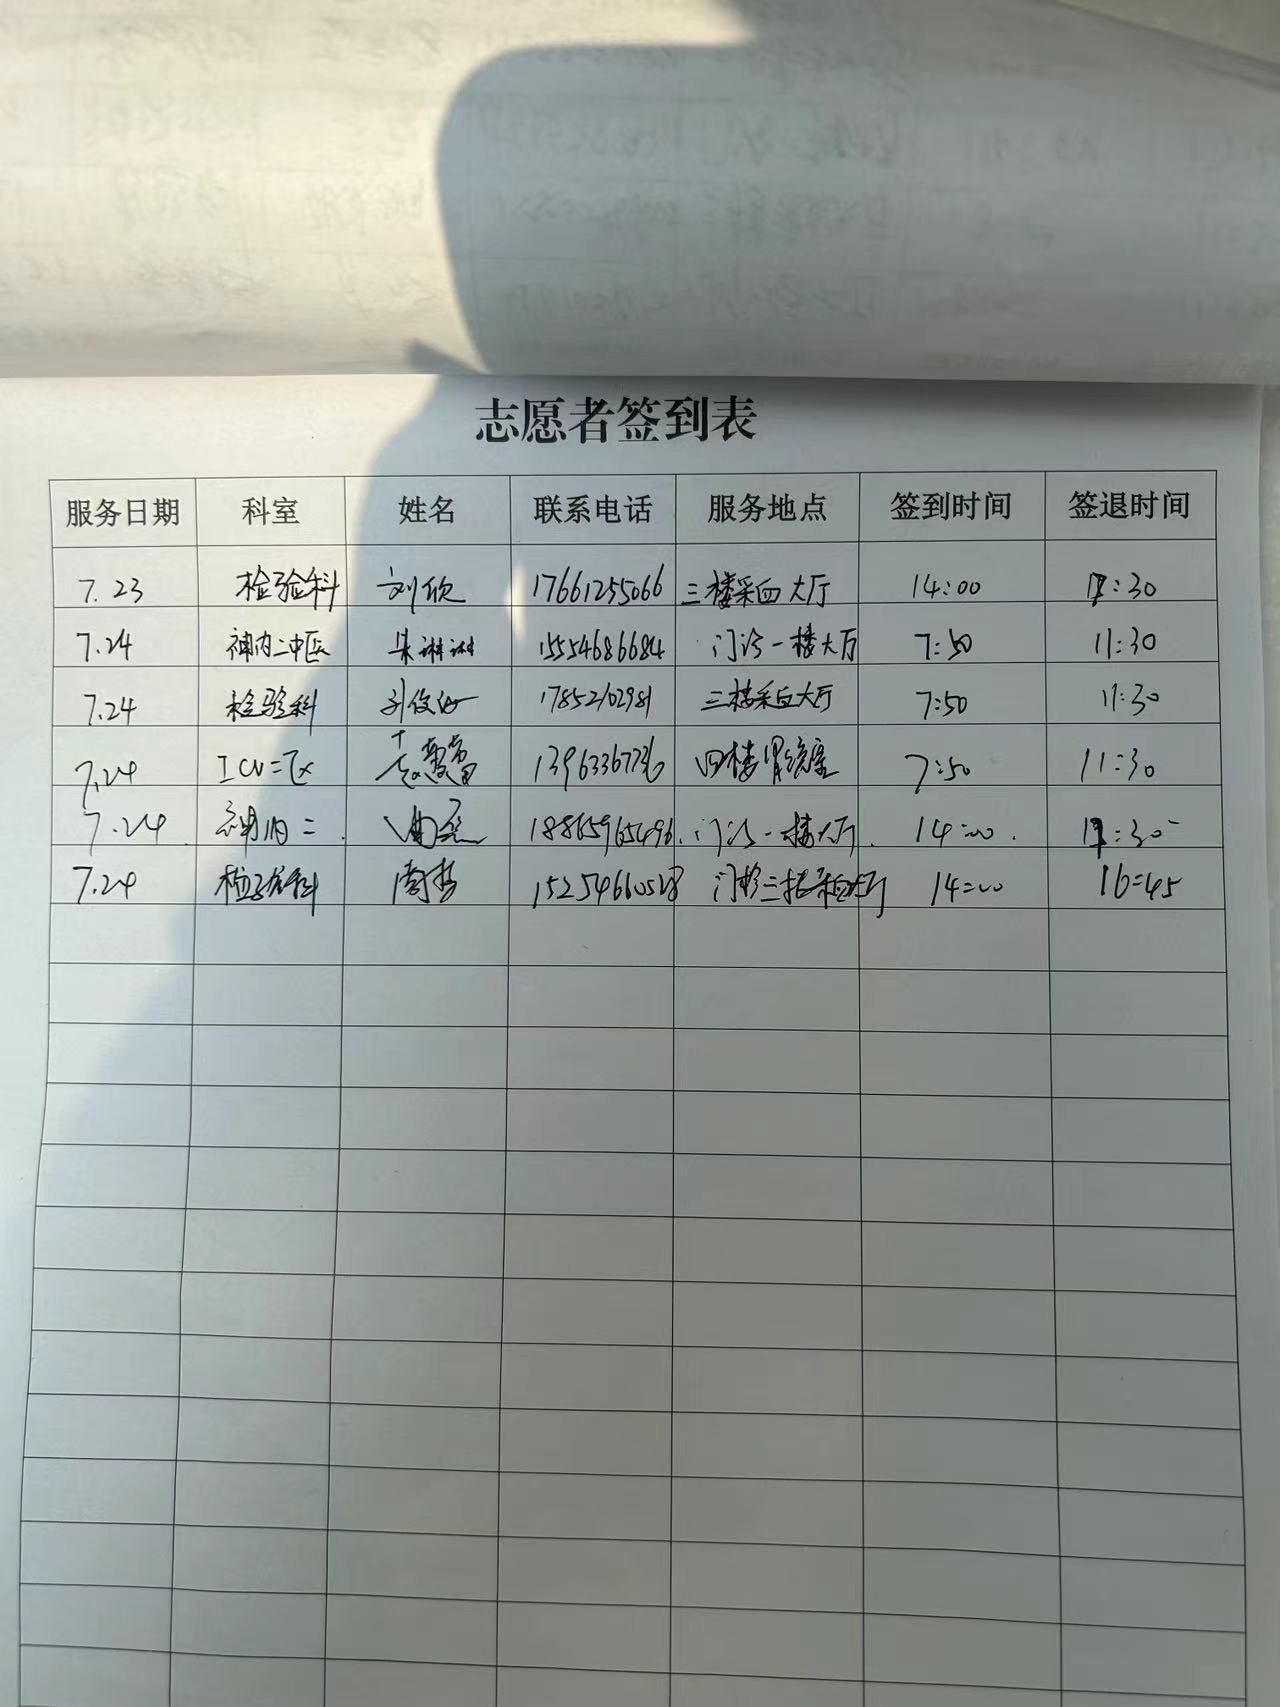 志愿者签到表
服务日期 科室 姓名 联系电话 服务地点 签到时间 签退时间
7.23 检验科 刘欣 17661255066 三楼采血大厅 14:00 17:30
7.24 神内二中区 朱琳琳 15554686684 门诊一楼大厅 7:50 11:30
7.24 检验科 17852102981 三楼采血大厅 7:50 11:30
7.24 ICU二区 四楼胃镜室 7:50 11:30
7.24 神内二 门诊一楼大厅 14:00 17:30
7.24 检验科 15254660528 门诊三楼采血大厅 14:00 16:45